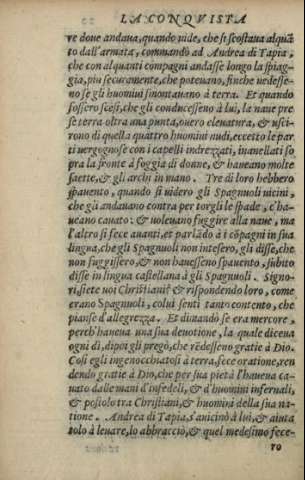 LA CONQVISTA
re doue andaua, quando uide, che si scostaua alquā
to dall'armata, commandò ad Andrea di Tapia,
che con alquanti compagni andasse longo la spiag-
gia, piu securamente, che poteuano, finche uedesse-
no se gli huomini smontauano à terra. Et quando
fossero scesi, che gli conducesseno à lui, la naue pre
se terra oltra una punta, ouero eleuatura, & usci-
rono di quella quattro huomini nudi, eccetto le par
ti uergognose con i capelli indrezzati, inanellati so
pra la fronte à foggia di donne, & haueano molte
saette, & gli archi in mano. Tre di loro hebbero
spauento, quando si uidero gli Spagnuoli uicini,
che gli andauano contra per torgli le spade, c'ha-
ueano cauato: & uoleuano fuggire alla naue, ma
l'altro si fece auanti, et parlādo à i cōpagni in sua
lingua, che gli Spagnuoli non intesero, gli disse, che
non fuggissero, & non hauesseno spauento, subito
disse in lingua castellana à gli Spagnuoli. Signo-
ri, siete uoi Christiani? & rispondendo loro, come
erano Spagnuoli, colui senti tanto contento, che
pianse d'allegrezza. Et dimandò se era mercore,
perch'haueua una sua deuotione, la quale diceua
ogni dì, dipoi gli pregò, che rēdesseno gratie à Dio.
Cosi egli ingenocchiatosi à terra, fece oratione, ren
dendo gratie à Dio, che per sua pietà l'haueua ca-
uato dalle mani d'infedeli, & d'huomini infernali,
& postolo tra Christiani, & huomini della sua na-
tione. Andrea di Tapia, s'auicinò à lui, & aiuta
tolo à leuare, lo abbracciò, & quel medesimo fece-
ro